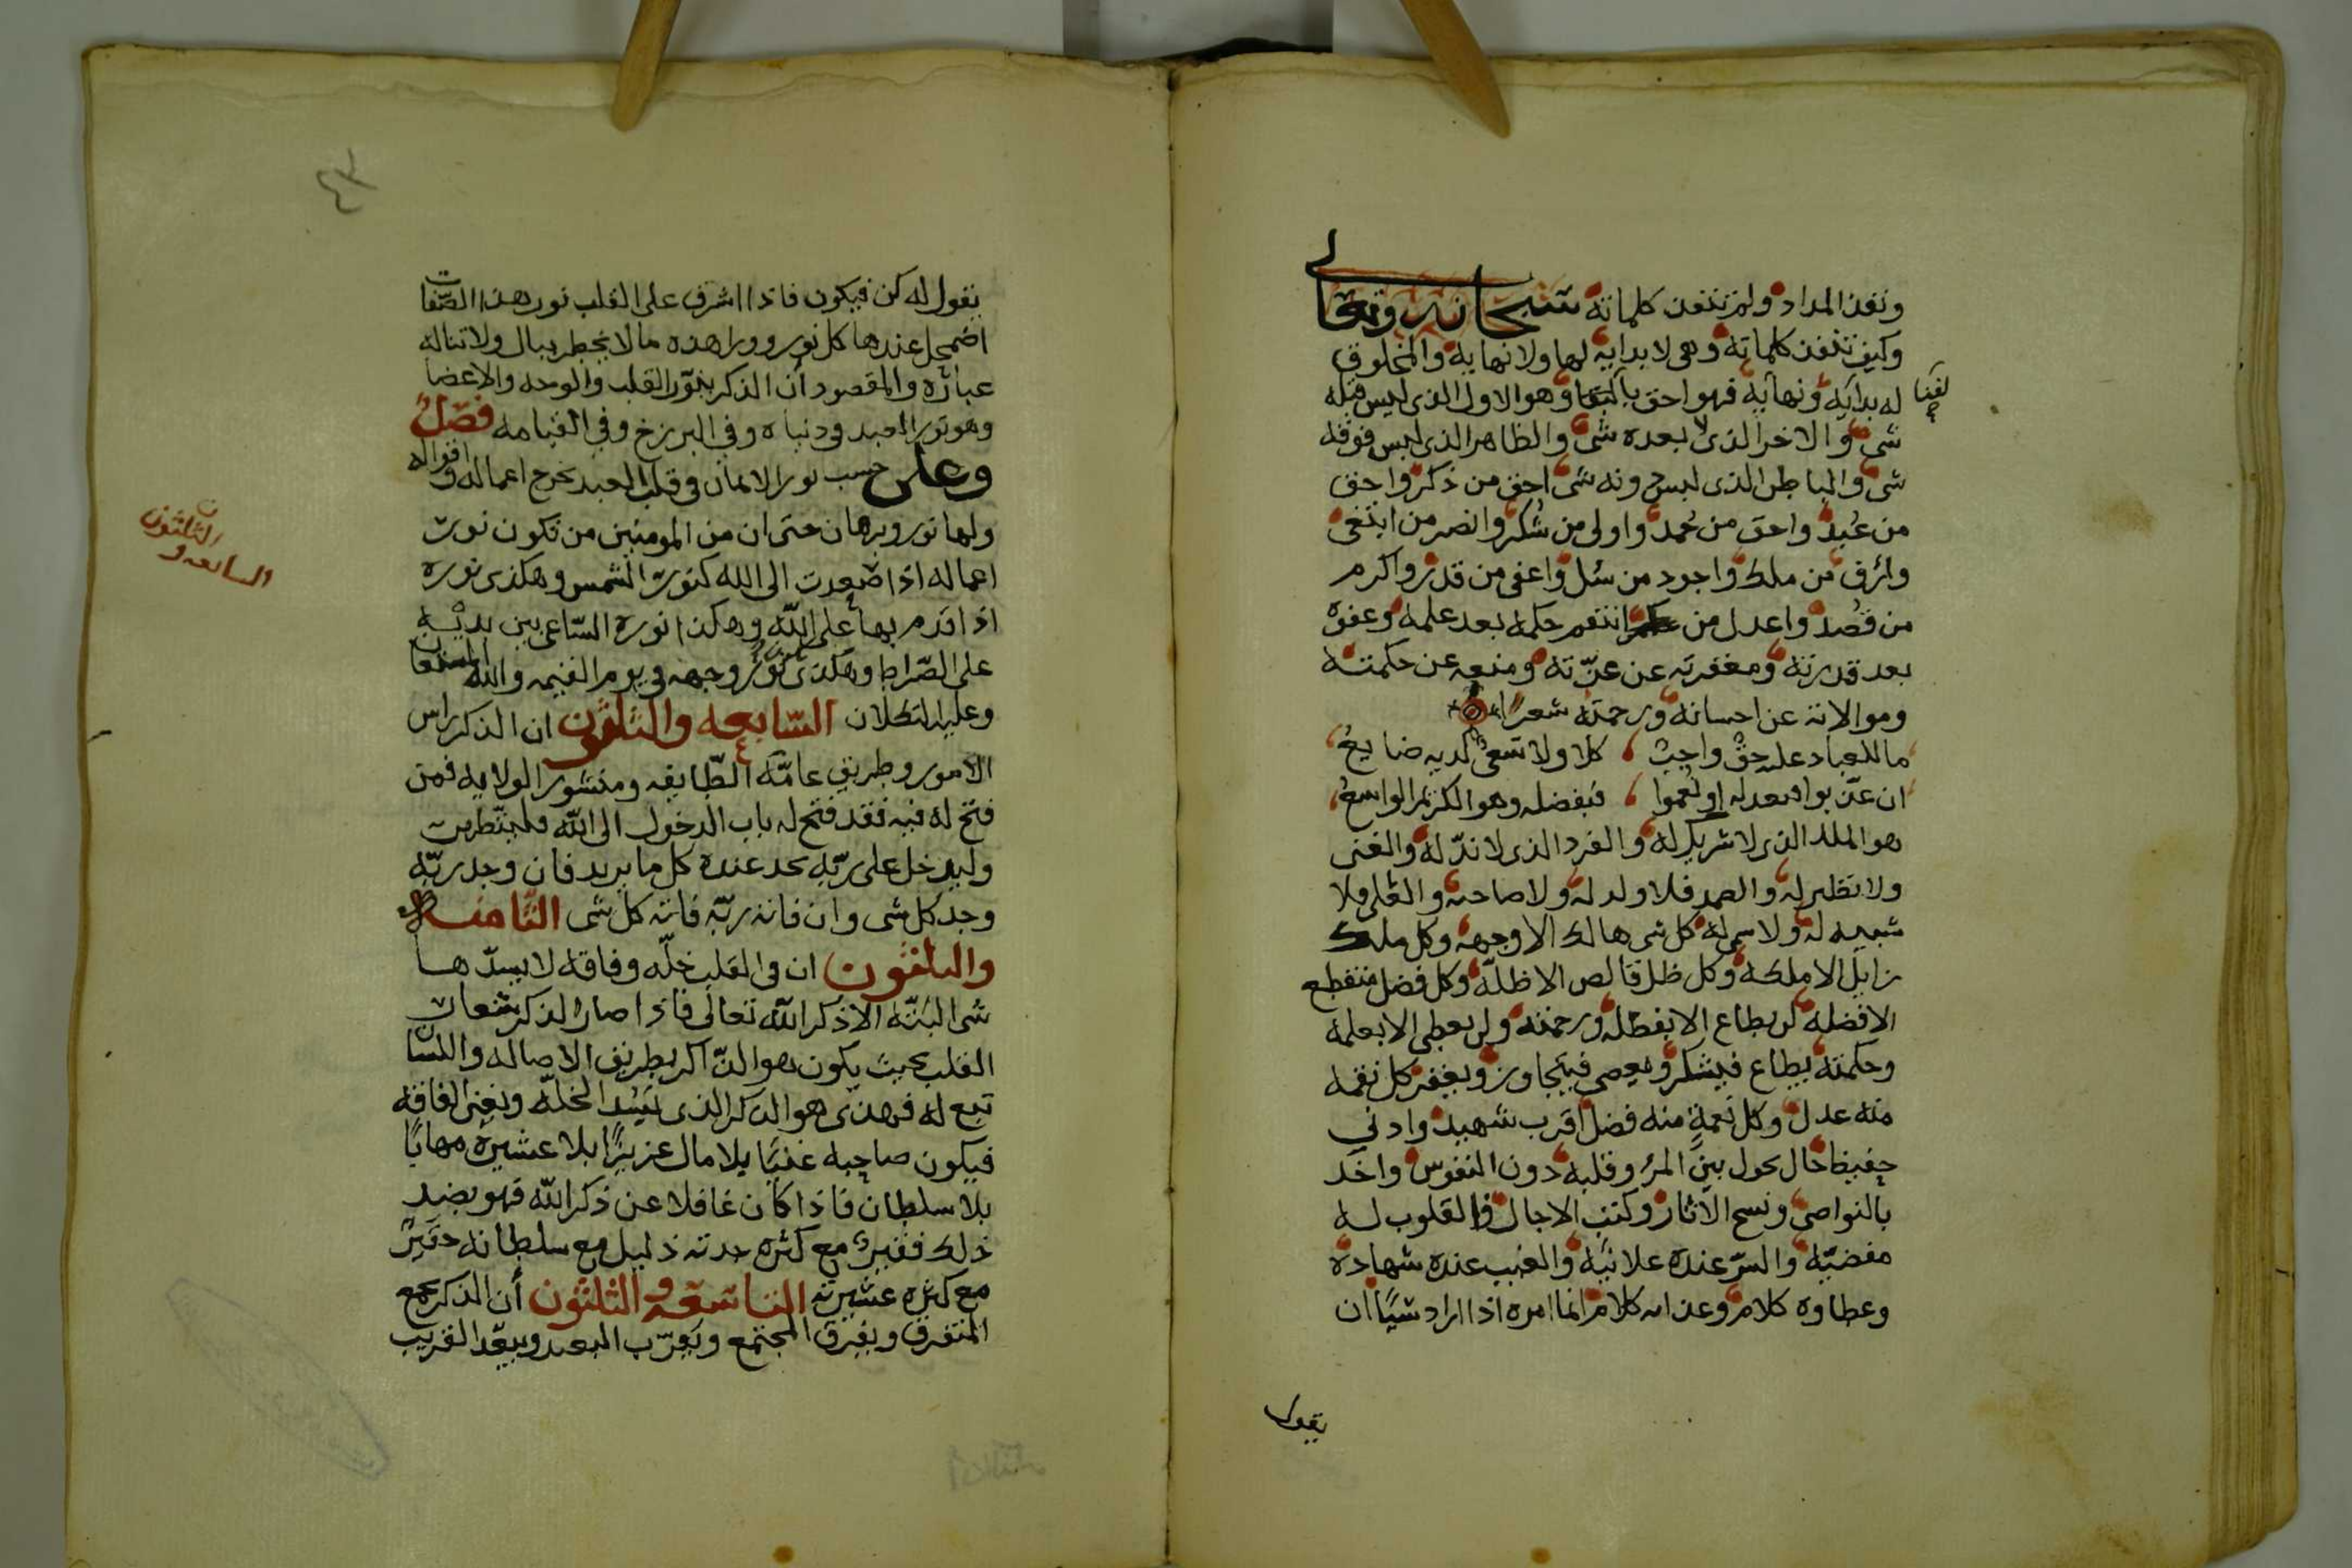 ونفذ المداد ولم تنفد كلماته سبحانه وتعالى
وكيف تنفد كلماته وهى لا بداية لها ولا نهاية والمخلوق
له بداية ونهاية فهو احق بالفنا وهو الاول الذى ليس قبله
شى والاخر الذى لا بعده شى والظاهر الذى ليس فوقه
شى والباطن الذى ليس دونه شى احق من ذكر واحق
من عُبد واحق من حُمد واولى من شُكر وانصر من ابتغى
وارؤف من ملك واجود من سُل واعفى من قدر واكرم
من قُصد واعدل من انتقم حكمه بعد علمه وعفوه
بعد قدرته ومغفرته عن عزّته ومنعه عن حكمته
وموالاته عن احسانه ورحمته شعرًا
ما للعباد عليه حقّ واجبُ كلا ولا سعىُ لديه ضايعُ
ان عذّبوا فبعدله او نُعموا فبفضله وهو الكريم الواسعُ
هو الملك الذى لا شريك له والفرد الذى لا ندّ له والغنى
ولا نظير له والصمد فلا ولد له ولا صاحبه والعلى فلا
شبيه له ولا سمى له كل شى هالك الا وجهه وكل ملك
زايل الا ملكه وكل ظل قالص الا ظله وكل فضل منقطع
الا فضله لن يطاع الا بفضله ورحمته ولن يعطى الا بعلمه
وحكمته يطاع فيشكر ويعصى فيتجاوز ويغفر كل نقمه
منه عدل وكل نعمةٍ منه فضل اقرب شهيد وادنى
حفيظ حال يحول بين المرؤ وقلبه دون النفوس واخذ
بالنواصى ونسخ الآثار وكتب الاجال فالقلوب له
مفضيّه والسرّ عنده علانيه والغيب عنده شهاده
وعطاوه كلام وعذابه كلام انما امره اذا اراد شيًا ان
يقول
يقول له كن فيكون فاذا اشرق على القلب نور هذا الصّفات
اضمحل عندها كل نور وورا هذه مالا يخطر ببال ولا تناله
عباره والمقصود أن الذكر ينوّر القلب والوجه والاعضا
وهو نور العبد فى دنياه وفى البرزخ وفى القيامه فصل
وعلى حسب نور الايمان فى قلب العبد يخرج اعماله واقواله
ولها نور وبرهان حتى ان من المومنين من تكون نور
اعماله اذا صعدت الى الله كنور الشمس وهكذى نوره
اذا قدم بها على الله وهكذا نوره السّاعى بين يديه
على الصّراط وهكذى نور وجهه فى يوم القيمه والله المستعان
وعليه التكلان السّابعه والثلثون ان الذكر راس
الامور وطريق عامّه الطّايفه ومنشور الولايه فمن
فتح له فيه فقد فتح له باب الدخول الى الله فليتطهر
وليدخل على ربّه يجد عنده كل ما يريد فان وجد ربّه
وجد كل شى وان فاته ربّه فاته كل شى الثّامنه
والثلثون ان فى القلب خلّه وفاقه لا يسدّها
شى البتّه الا ذكر الله تعالى فاذا صار الذكر شعار
القلب بحيث يكون هو الذّاكر بطريق الاصاله واللسان
تبع له فهذى هو الذكر الذى يَسُد الخلّه ويغنى الفاقه
فيكون صاحبه غنيًا بلا مال عزيزًا بلا عشيرة مهابًا
بلا سلطان فاذا كان غافلا عن ذكر الله فهو بضد
ذلك فقير مع كثره جدته ذليل مع سلطانه حقير
مع كثره عشيرته التاسعه والثلثون أن الذكر يجمع
المتفرق ويفرق المجتمع ويقرّب البعيد ويبعّد القريب
السابعه و
الثلثون